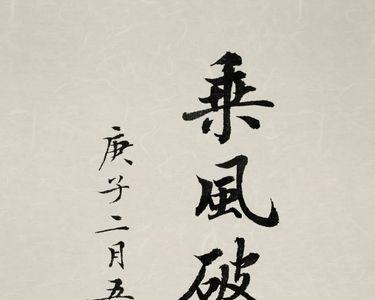 乘風破
庚子二月五